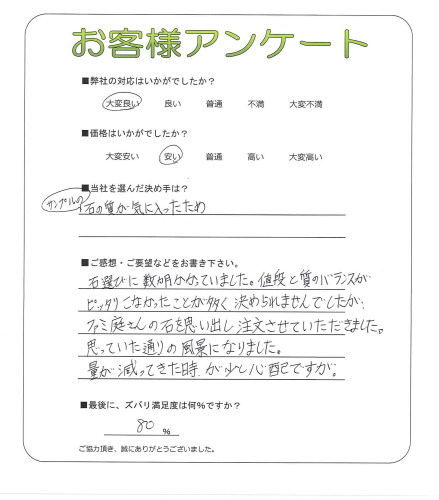 お客様アンケート
■弊社の対応はいかがでしたか？
大変良い 良い 普通 不満 大変不満
■価格はいかがでしたか？
大変安い 安い 普通 高い 大変高い
■当社を選んだ決め手は？
サンプルの石の質が気に入ったため
■ご感想・ご要望などをお書き下さい。
石選びに数ヶ月かかっていました。値段と質のバランスが
ピッタリこなかったことが多く、決められませんでしたが、
ファミ庭さんの石を思い出し注文させていただきました。
思っていた通りの風景になりました。
量が減ってきた時が少し心配ですが。
■最後に、ズバリ満足度は何%ですか？
80 %
ご協力頂き、誠にありがとうございました。